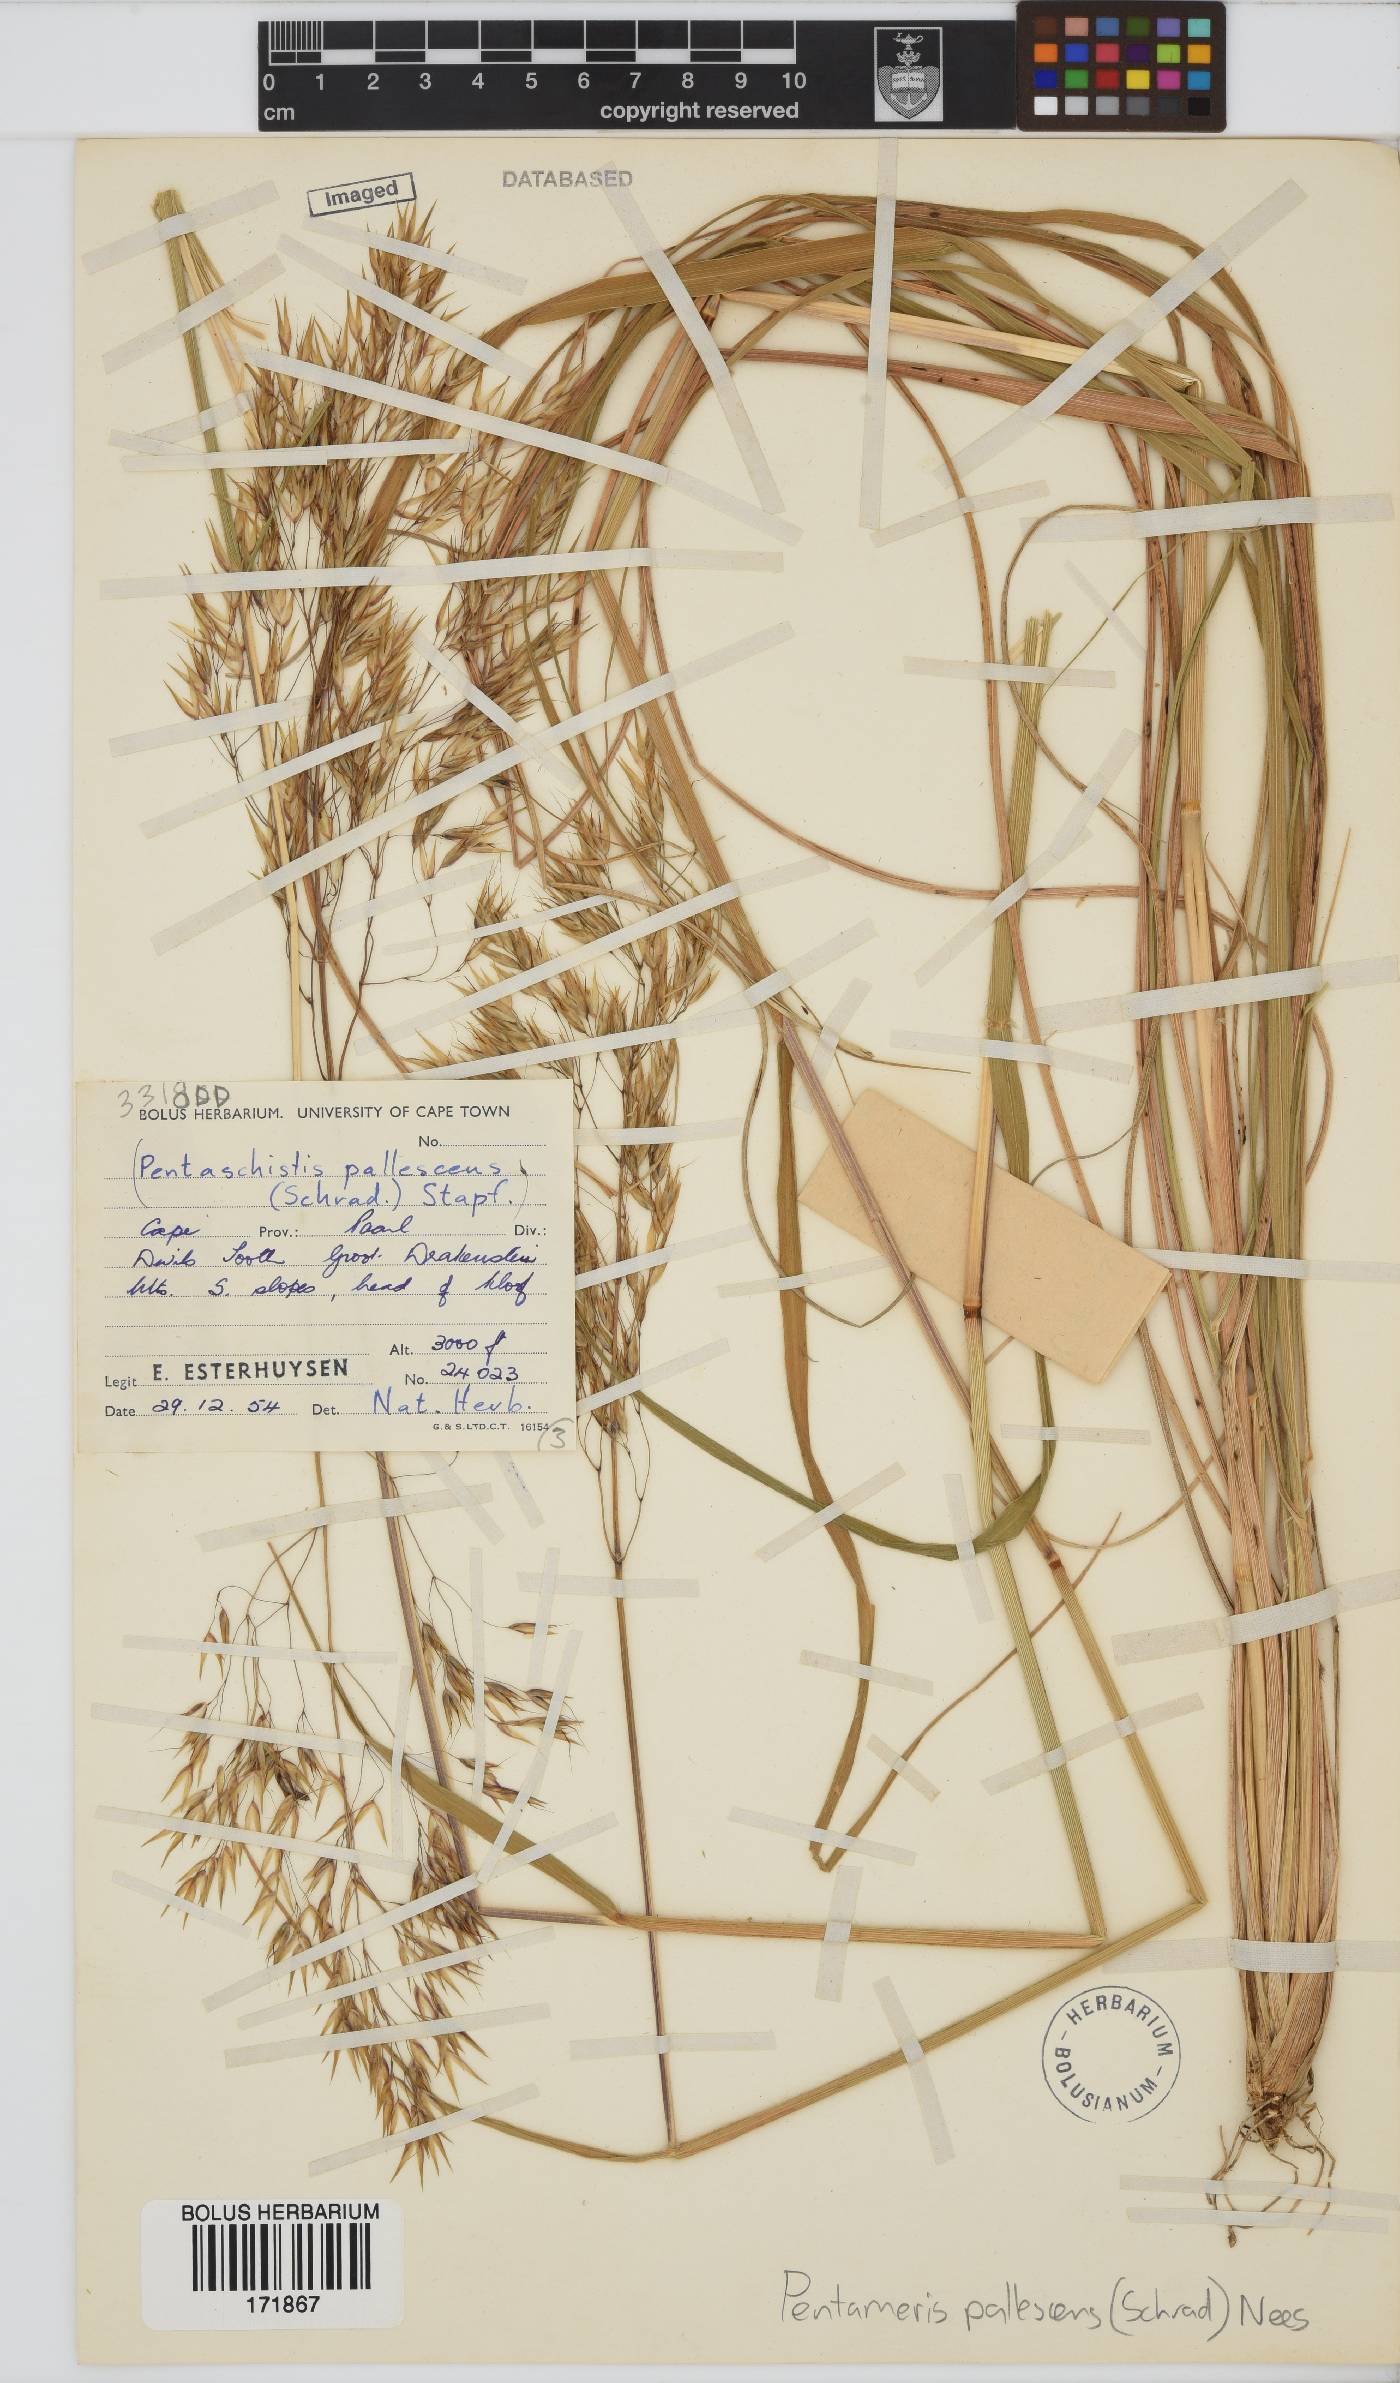 0 1 2 3 4 5 6 7 8 9 10
cm copyright reserved
Imaged
DATABASED
3318DD
BOLUS HERBARIUM. UNIVERSITY OF CAPE TOWN
No.
(Pentaschistis pallescens
(Schrad.) Stapf.)
Cape Prov.: Paarl Div.:
Devils Tooth Groot Drakenstein
Mts. S. slopes, head of kloof
Alt. 3000 ft
Legit E. ESTERHUYSEN No. 24023
Date 29.12.54 Det. Nat. Herb.
G. & S. LTD. C.T. 16154
HERBARIUM
BOLUSIANUM
BOLUS HERBARIUM
171867
Pentameris pallescens (Schrad) Nees